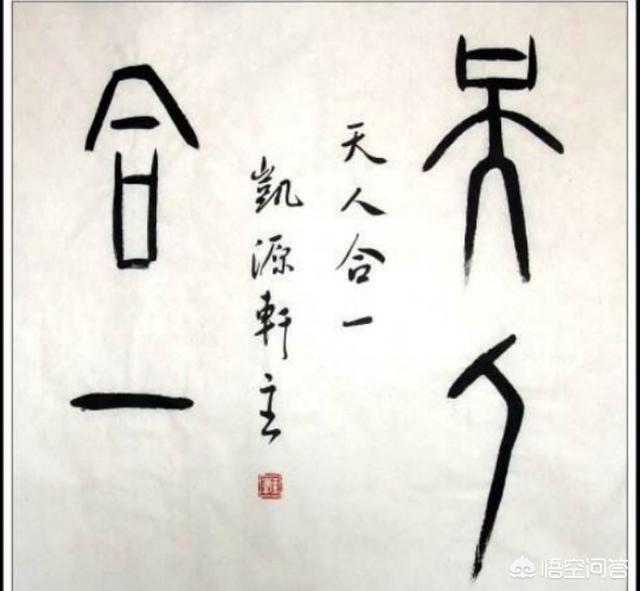 天人
合一
天人合一
凱源軒主
悟空问答